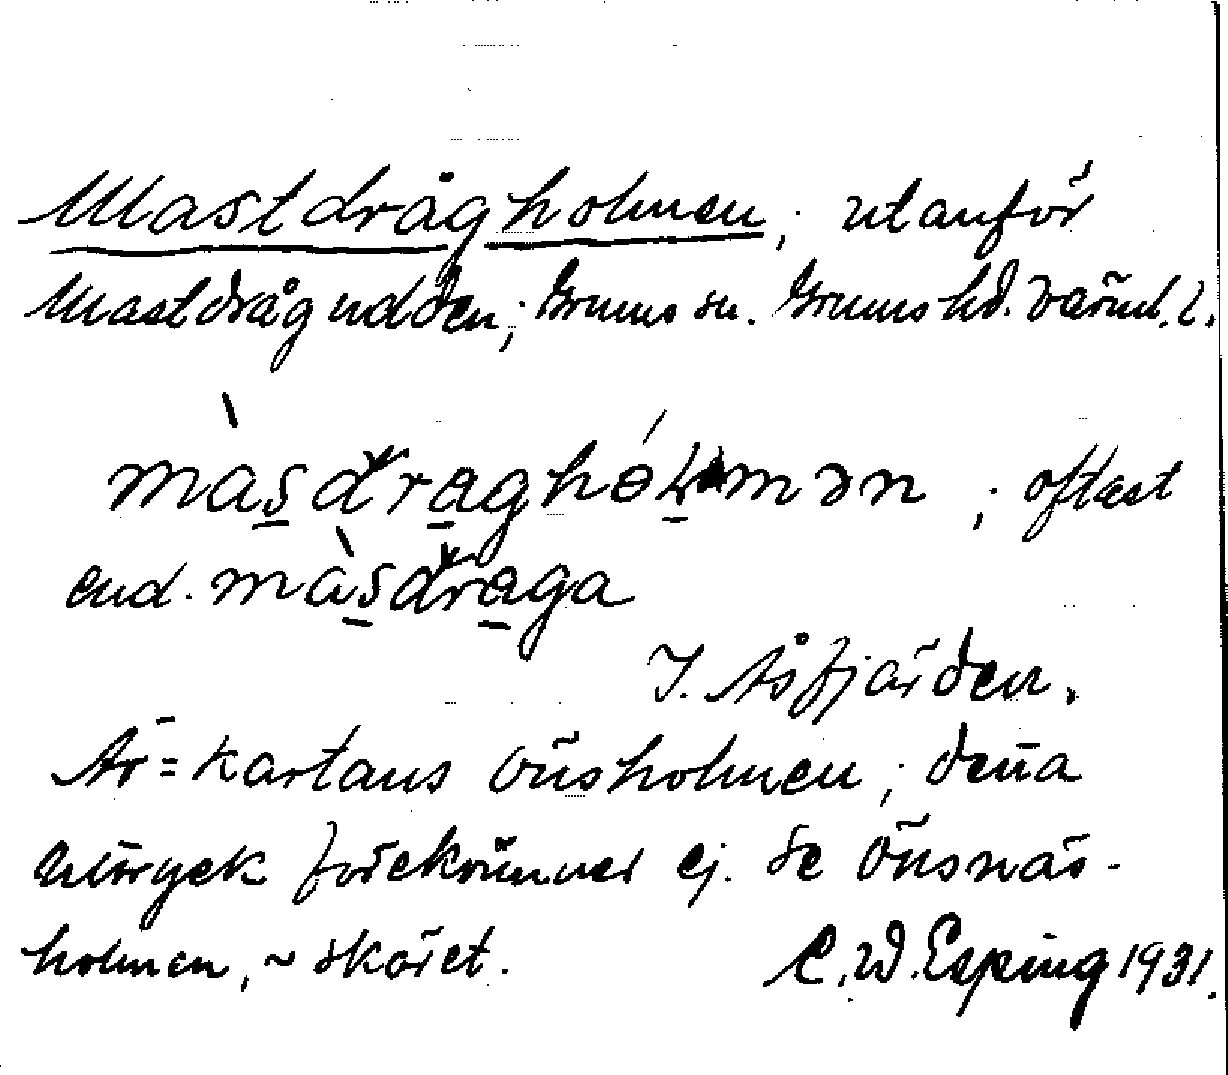 Mastdrågholmen; utanför
Mastdrågudden; Grums sn. Grums hd. Värml. l.
màsdraghólmən; oftast
end. màsdraga
I. Åsfjärden.
Är = kartans Önsholmen; denna
uttryck förekommer ej. Se Önsnäs-
holmen, ~ skäret. C. W. Esping 1931.